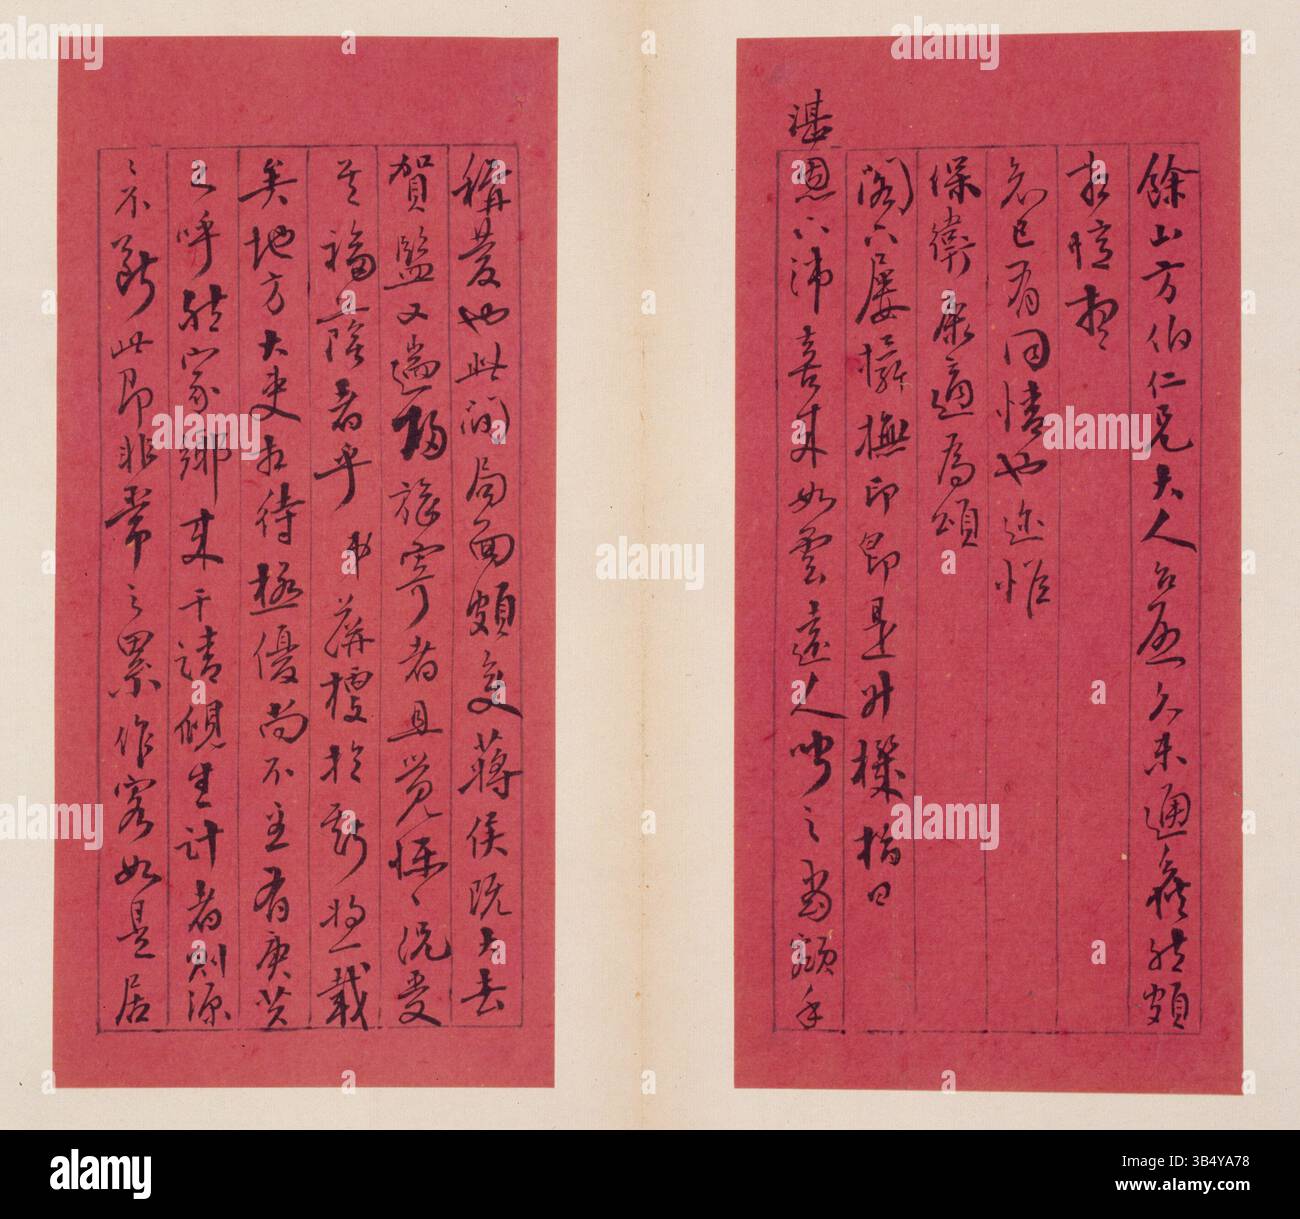 餘山方伯仁兄大人台座久未通候然頗
相憶想
兄已有同情也迩惟
保衛康適為頌
閣下屢攝撫印即是升機指日
湛恩下沛喜來如雲遠人聞之當額手
稱慶也此間局面頗變蔣侯既大去
賀監又遄歸旅寄者且覺慄〻況受
其福蔭者乎弟薜樓於新愁載
矣地方大吏相待極優尚不至有庚癸
之呼然家鄉來干請覬生計者則源
〻不斷此即非常之累作客如是居
alamy
Image ID: 3B4YA78
www.alamy.com